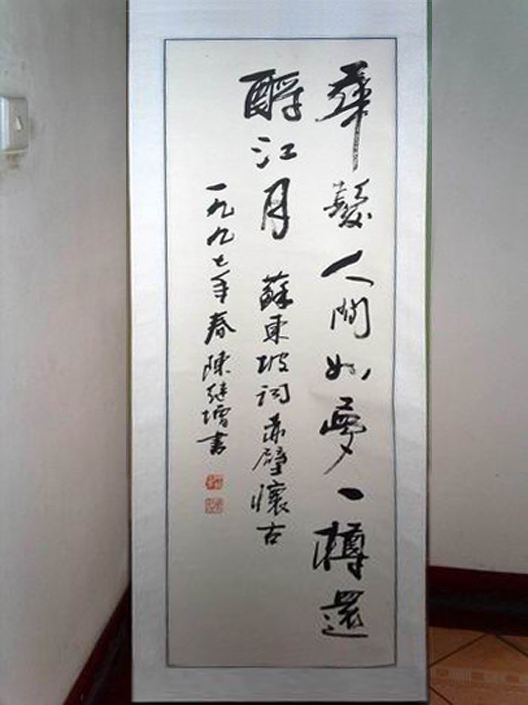 華髮人間如夢一樽還
酹江月 蘇東坡詞赤壁懷古
一九九七年春陳繼增書